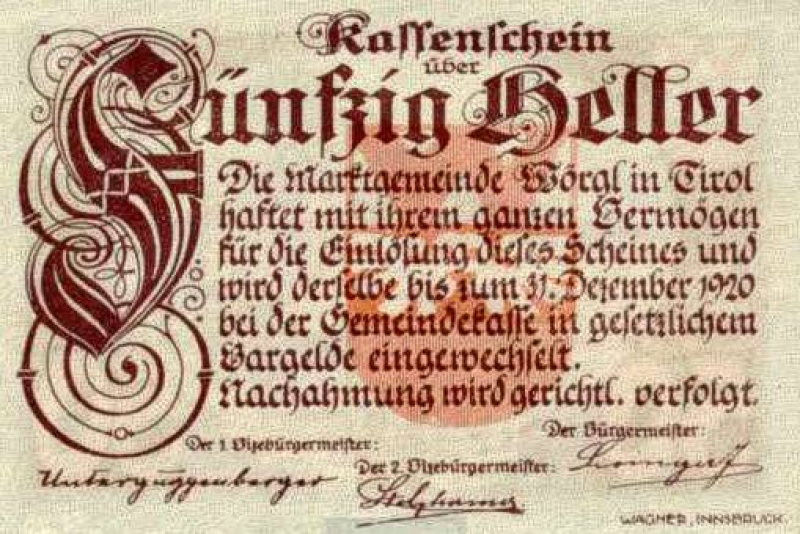 Kassenschein
über
Fünfzig Heller
Die Marktgemeinde Wörgl in Tirol
haftet mit ihrem ganzen Vermögen
für die Einlösung dieses Scheines und
wird derselbe bis zum 31. Dezember 1920
bei der Gemeindekasse in gesetzlichem
Bargelde eingewechselt.
Nachahmung wird gerichtl. verfolgt.
Der Bürgermeister:
Der 1. Vizebürgermeister:
Der 2. Vizebürgermeister:
Unterguggenberger
WAGNER, INNSBRUCK.